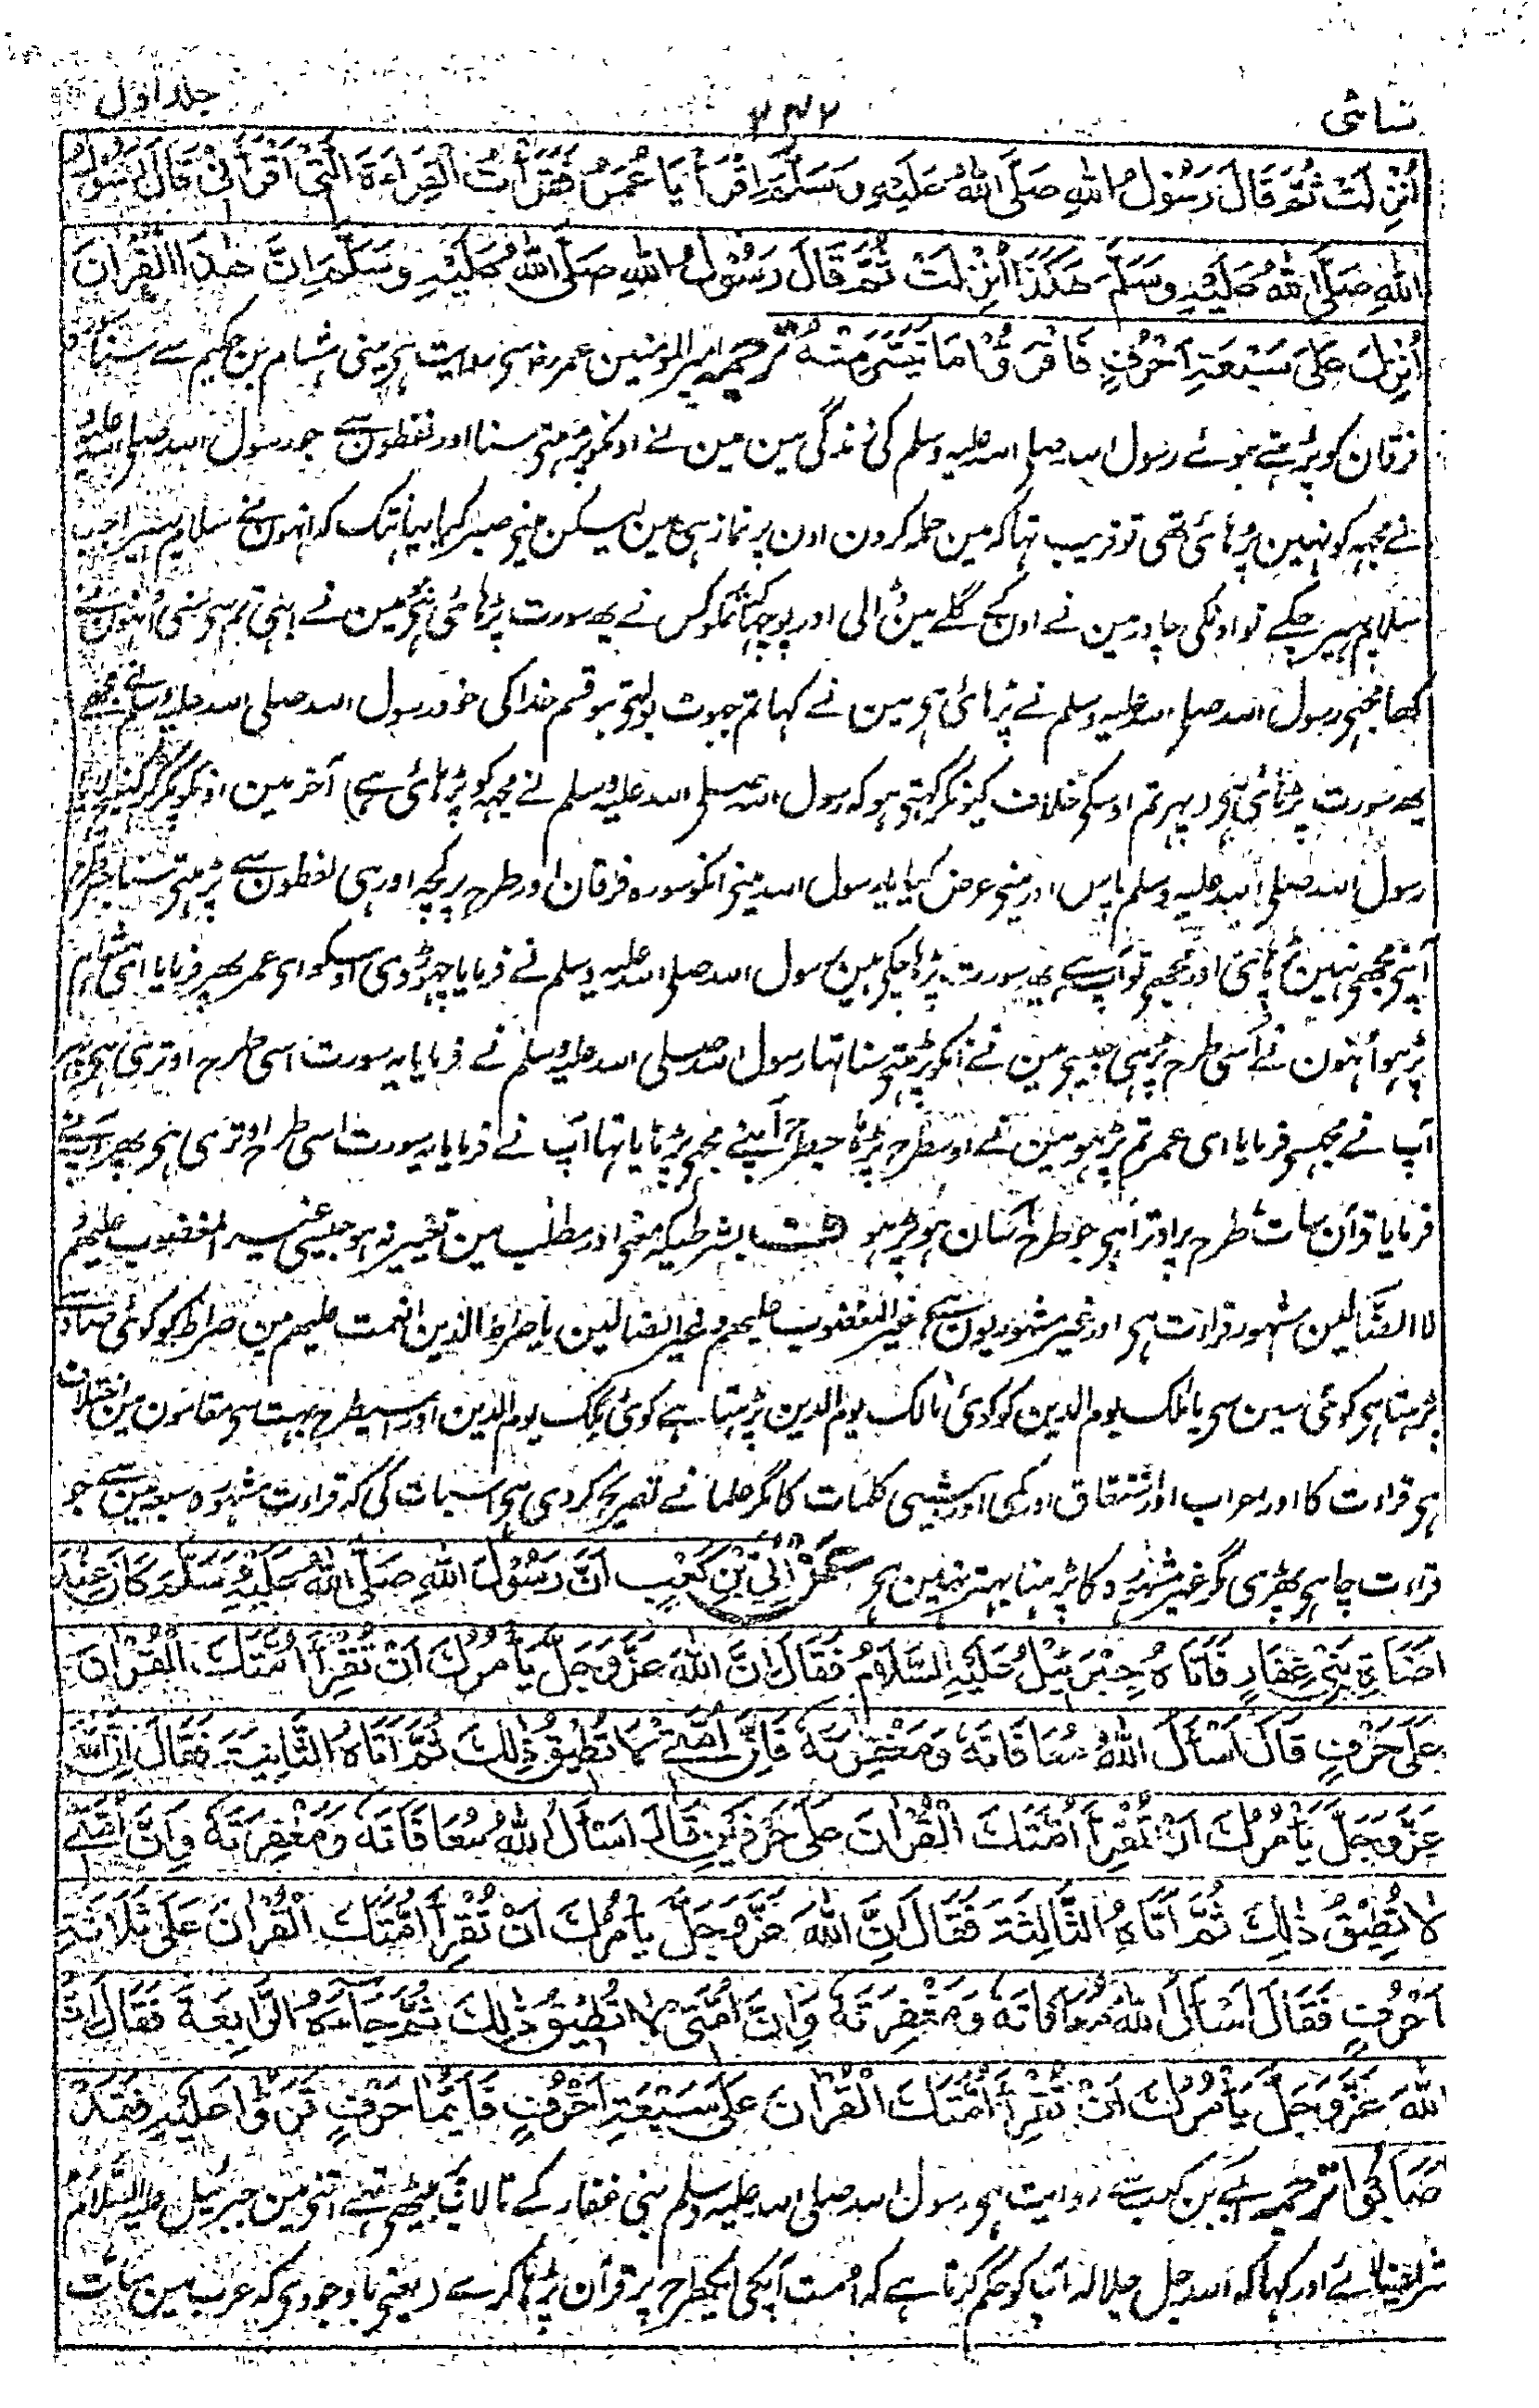 نسائی ۳۴۲ جلد اول
اُنْزِلَتْ ثُمَّ قَالَ رَسُوْلُ اللّٰهِ صَلَّى اللّٰهُ عَلَيْهِ وَسَلَّمَ اِقْرَأْ يَا عُمَرُ فَقَرَأْتُ الْقِرَاءَةَ الَّتِيْ اَقْرَأَنِيْ قَالَ رَسُوْلُ
اللّٰهِ صَلَّى اللّٰهُ عَلَيْهِ وَسَلَّمَ هٰكَذَا اُنْزِلَتْ ثُمَّ قَالَ رَسُوْلُ اللّٰهِ صَلَّى اللّٰهُ عَلَيْهِ وَسَلَّمَ اِنَّ هٰذَا الْقُرْاٰنَ
اُنْزِلَ عَلٰى سَبْعَةِ اَحْرُفٍ فَاقْرَؤُا مَا تَيَسَّرَ مِنْهُ ترجمہ امیرالمومنین عمر رضہ سی روایت ہی مینی ہشام بن حکیم سے سنا سورہ
فرقان کو پڑہتے ہوئے رسول اللہ صلی اللہ علیہ وسلم کی زندگی مین مین نے اونکو پڑہتی سنا اور لفظون سے جو رسول اللہ صلی اللہ علیہ وسلم
نے مجہہ کو نہین پڑہائی تھی تو قریب تہا کہ مین حملہ کرون اون پر نماز ہی مین لیکن مینی صبر کیا یہانتک کہ انہون نے سلام پہیرا جب
سلام پہیر چکے تو اونکی چادر مین نے اون کے گلے مین ڈالی اور پوچہا تمکو کس نے یہ سورت پڑہائی ہی جو مین نے ابہی تم سی سنی انہون نے
کہا مجہی رسول اللہ صلی اللہ علیہ وسلم نے پڑہائی ہی مین نے کہا تم جہوٹ بولتی ہو قسم خدا کی خود رسول اللہ صلی اللہ علیہ وسلم نے مجھے
یہ سورت پڑہائی ہی (پہر تم اوسکی خلاف کیونکر کہتی ہو کہ رسول اللہ صلی اللہ علیہ وسلم نے مجہہ کو پڑہائی ہے) آخر مین اونکو پکڑ کر
رسول اللہ صلی اللہ علیہ وسلم پاس اور مینی عرض کیا یا رسول اللہ مینی انکو سورہ فرقان اور طرح پر کچہ اور ہی لفظون سے پڑہتی سنا جسطرح
آپنی مجھی نہین پڑہائی اور مجھی تو آپ یہ سورت پڑہا چکی ہین رسول اللہ صلی اللہ علیہ وسلم نے فرمایا چہوڑ دی اوسکو ای عمر پھر فرمایا ای ہشام
پڑہو انہون نے اسی طرح پڑہی جیسی مین نے انکو پڑہتی سنا تہا رسول اللہ صلی اللہ علیہ وسلم نے فرمایا یہ سورت اسی طرح اوتری ہی پہر
آپ نے مجہسی فرمایا ای عمر تم پڑہو مین نے اوسطرح پڑہا جسطرح آپنے مجہی پڑہایا تہا آپ نے فرمایا یہ سورت اسی طرح اوتری ہی پھر آپ نے
فرمایا قرآن سات طرح پر اوترا ہی جسطرح آسان ہو پڑہو ف بشرطیکہ معنی اور مطلب مین تغیر نہ ہو جیسی غیر المغضوب علیھم
لا الضالین مشہور قراءت ہی اور غیر مشہور یون ہے غیر المغضوب علیھم وغیر الضالین یا صراط الذین انعمت علیھم مین صراط کو کوئی صاد سے
پڑہتا ہی کوئی سین سی یا ملک یوم الدین کو کوئی مالک یوم الدین پڑہتا ہے کوئی ملک یوم الدین اور اسیطرح بہت سی مقامون مین اختلاف
ہی قراءت کا اور اعراب اور اشتقاق اور کمی اور بیشی کلمات کا مگر علما نے تصریح کر دی ہی اسبات کی کہ قراءت مشہورہ سبعہ مین سے جو
قراءت چاہی پڑہی مگر غیر مشہورہ کا پڑہنا بہتر نہین ہی عَنْ اُبَيِّ بْنِ كَعْبٍ اَنَّ رَسُوْلَ اللّٰهِ صَلَّى اللّٰهُ عَلَيْهِ وَسَلَّمَ كَانَ عِنْدَ
اَضَاةِ بَنِيْ غِفَارٍ فَاَتَاهُ جِبْرَئِيْلُ عَلَيْهِ السَّلَامُ فَقَالَ اِنَّ اللّٰهَ عَزَّ وَجَلَّ يَأْمُرُكَ اَنْ تُقْرِأَ اُمَّتَكَ الْقُرْاٰنَ
عَلٰى حَرْفٍ قَالَ اَسْأَلُ اللّٰهَ مُعَافَاتَهٗ وَمَغْفِرَتَهٗ فَاِنَّ اُمَّتِيْ لَا تُطِيْقُ ذٰلِكَ ثُمَّ اَتَاهُ الثَّانِيَةَ فَقَالَ اِنَّ اللّٰهَ
عَزَّ وَجَلَّ يَأْمُرُكَ اَنْ تُقْرِأَ اُمَّتَكَ الْقُرْاٰنَ عَلٰى حَرْفَيْنِ قَالَ اَسْأَلُ اللّٰهَ مُعَافَاتَهٗ وَمَغْفِرَتَهٗ وَاِنَّ اُمَّتِيْ
لَا تُطِيْقُ ذٰلِكَ ثُمَّ اَتَاهُ الثَّالِثَةَ فَقَالَ اِنَّ اللّٰهَ عَزَّ وَجَلَّ يَأْمُرُكَ اَنْ تُقْرِأَ اُمَّتَكَ الْقُرْاٰنَ عَلٰى ثَلَاثَةِ
اَحْرُفٍ فَقَالَ اَسْأَلُ اللّٰهَ مُعَافَاتَهٗ وَمَغْفِرَتَهٗ وَاِنَّ اُمَّتِيْ لَا تُطِيْقُ ذٰلِكَ ثُمَّ جَاءَهُ الرَّابِعَةَ فَقَالَ اِنَّ
اللّٰهَ عَزَّ وَجَلَّ يَأْمُرُكَ اَنْ تُقْرِأَ اُمَّتَكَ الْقُرْاٰنَ عَلٰى سَبْعَةِ اَحْرُفٍ فَاَيُّمَا حَرْفٍ قَرَؤُا عَلَيْهِ فَقَدْ
اَصَابُوْا ترجمہ ابی بن کعب سے روایت ہی رسول اللہ صلی اللہ علیہ وسلم بنی غفار کے تالاب بیٹھی تھے اتنی مین جبرئیل علیہ السلام
تشریف لائے اور کہا کہ اللہ جل جلالہ آپ کو حکم کرتا ہے کہ امت آپکی ایکطرح پر قرآن پڑہا کرے (یعنی باوجودی کہ عرب مین سات